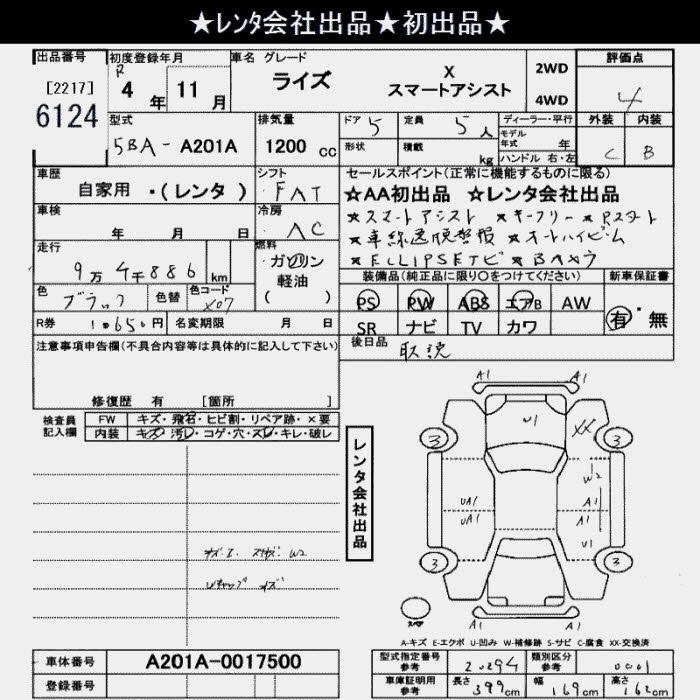 ★レンタ会社出品★初出品★
出品番号 初度登録年月 車名 グレード 評価点
[2217] R 4 年 11 月 ライズ X 2WD 4
6124 スマートアシスト 4WD
型式 排気量 ドア 5 定員 5人 ディーラー・平行 外装 内装
5BA-A201A 1200 cc 形状 積載 kg モデル年式 年 C B
ハンドル 右・左
車歴 シフト セールスポイント(正常に機能するものに限る)
自家用 ・(レンタ) FAT ☆AA初出品 ☆レンタ会社出品
車検 冷房 ★スマートアシスト ★キーフリー ★Pスタート
年 月 日 AC ★車線逸脱警報 ★オートハイビーム
走行 燃料 ★ECLIPSEナビ ★BAカメラ
9万4千886 km ガソリン 装備品(純正品に限り○をつけてください) 新車保証書
軽油
色 色替 色コード ( ) PS PW ABS エアB AW 有・無
ブラック X07
R券 10650円 名変期限 月 日 SR ナビ TV カワ
注意事項申告欄(不具合内容等は具体的に記入して下さい) 後日品 取説
修復歴 有 [箇所 ]
検査員記入欄 FW キズ・飛石・ヒビ割・リペア跡・×要
内装 キズ・汚レ・コゲ・穴・スレ・キレ・破レ
レンタ会社出品
A1 A1
U1 XX
3 3
W2
UA1 A1
UA1 A1
U1
3 3
A1 A1
W2
キズ
A-キズ E-エクボ U-凹み W-補修跡 S-サビ C-腐食 XX-交換済
車体番号 A201A-0017500 型式指定番号 参考 20294 類別区分 参考 0001
登録番号 車庫証明用 参考 長さ 399cm 幅 169cm 高さ 162cm